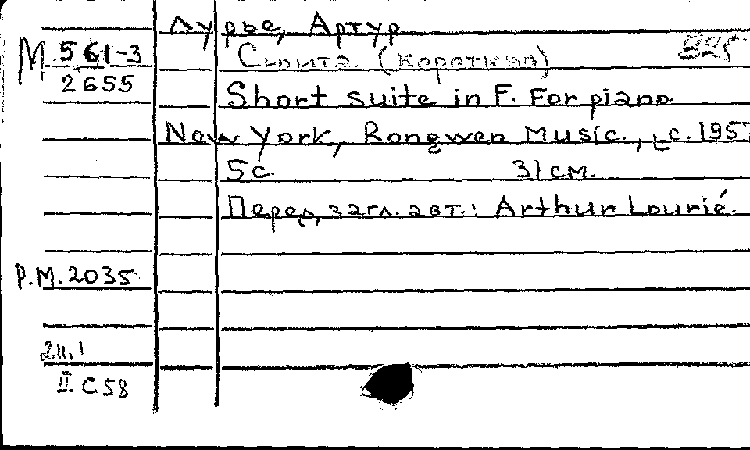 Лурье, Артур
М 561-3
2655
Сюита (Короткая)
Short suite in F. For piano
New York, Rongwen Music., c. 195
5с 31 см.
Перед загл. авт.: Arthur Lourié.
Р.М. 2035
II. С 58